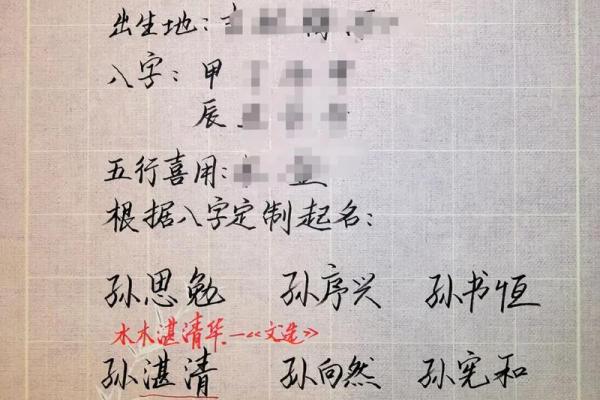 出生地:
八字: 甲
辰
五行喜用:
根据八字定制起名:
孙思勉 孙序兴 孙书恒
水木湛清华—《文选》
孙湛清 孙向然 孙宪和